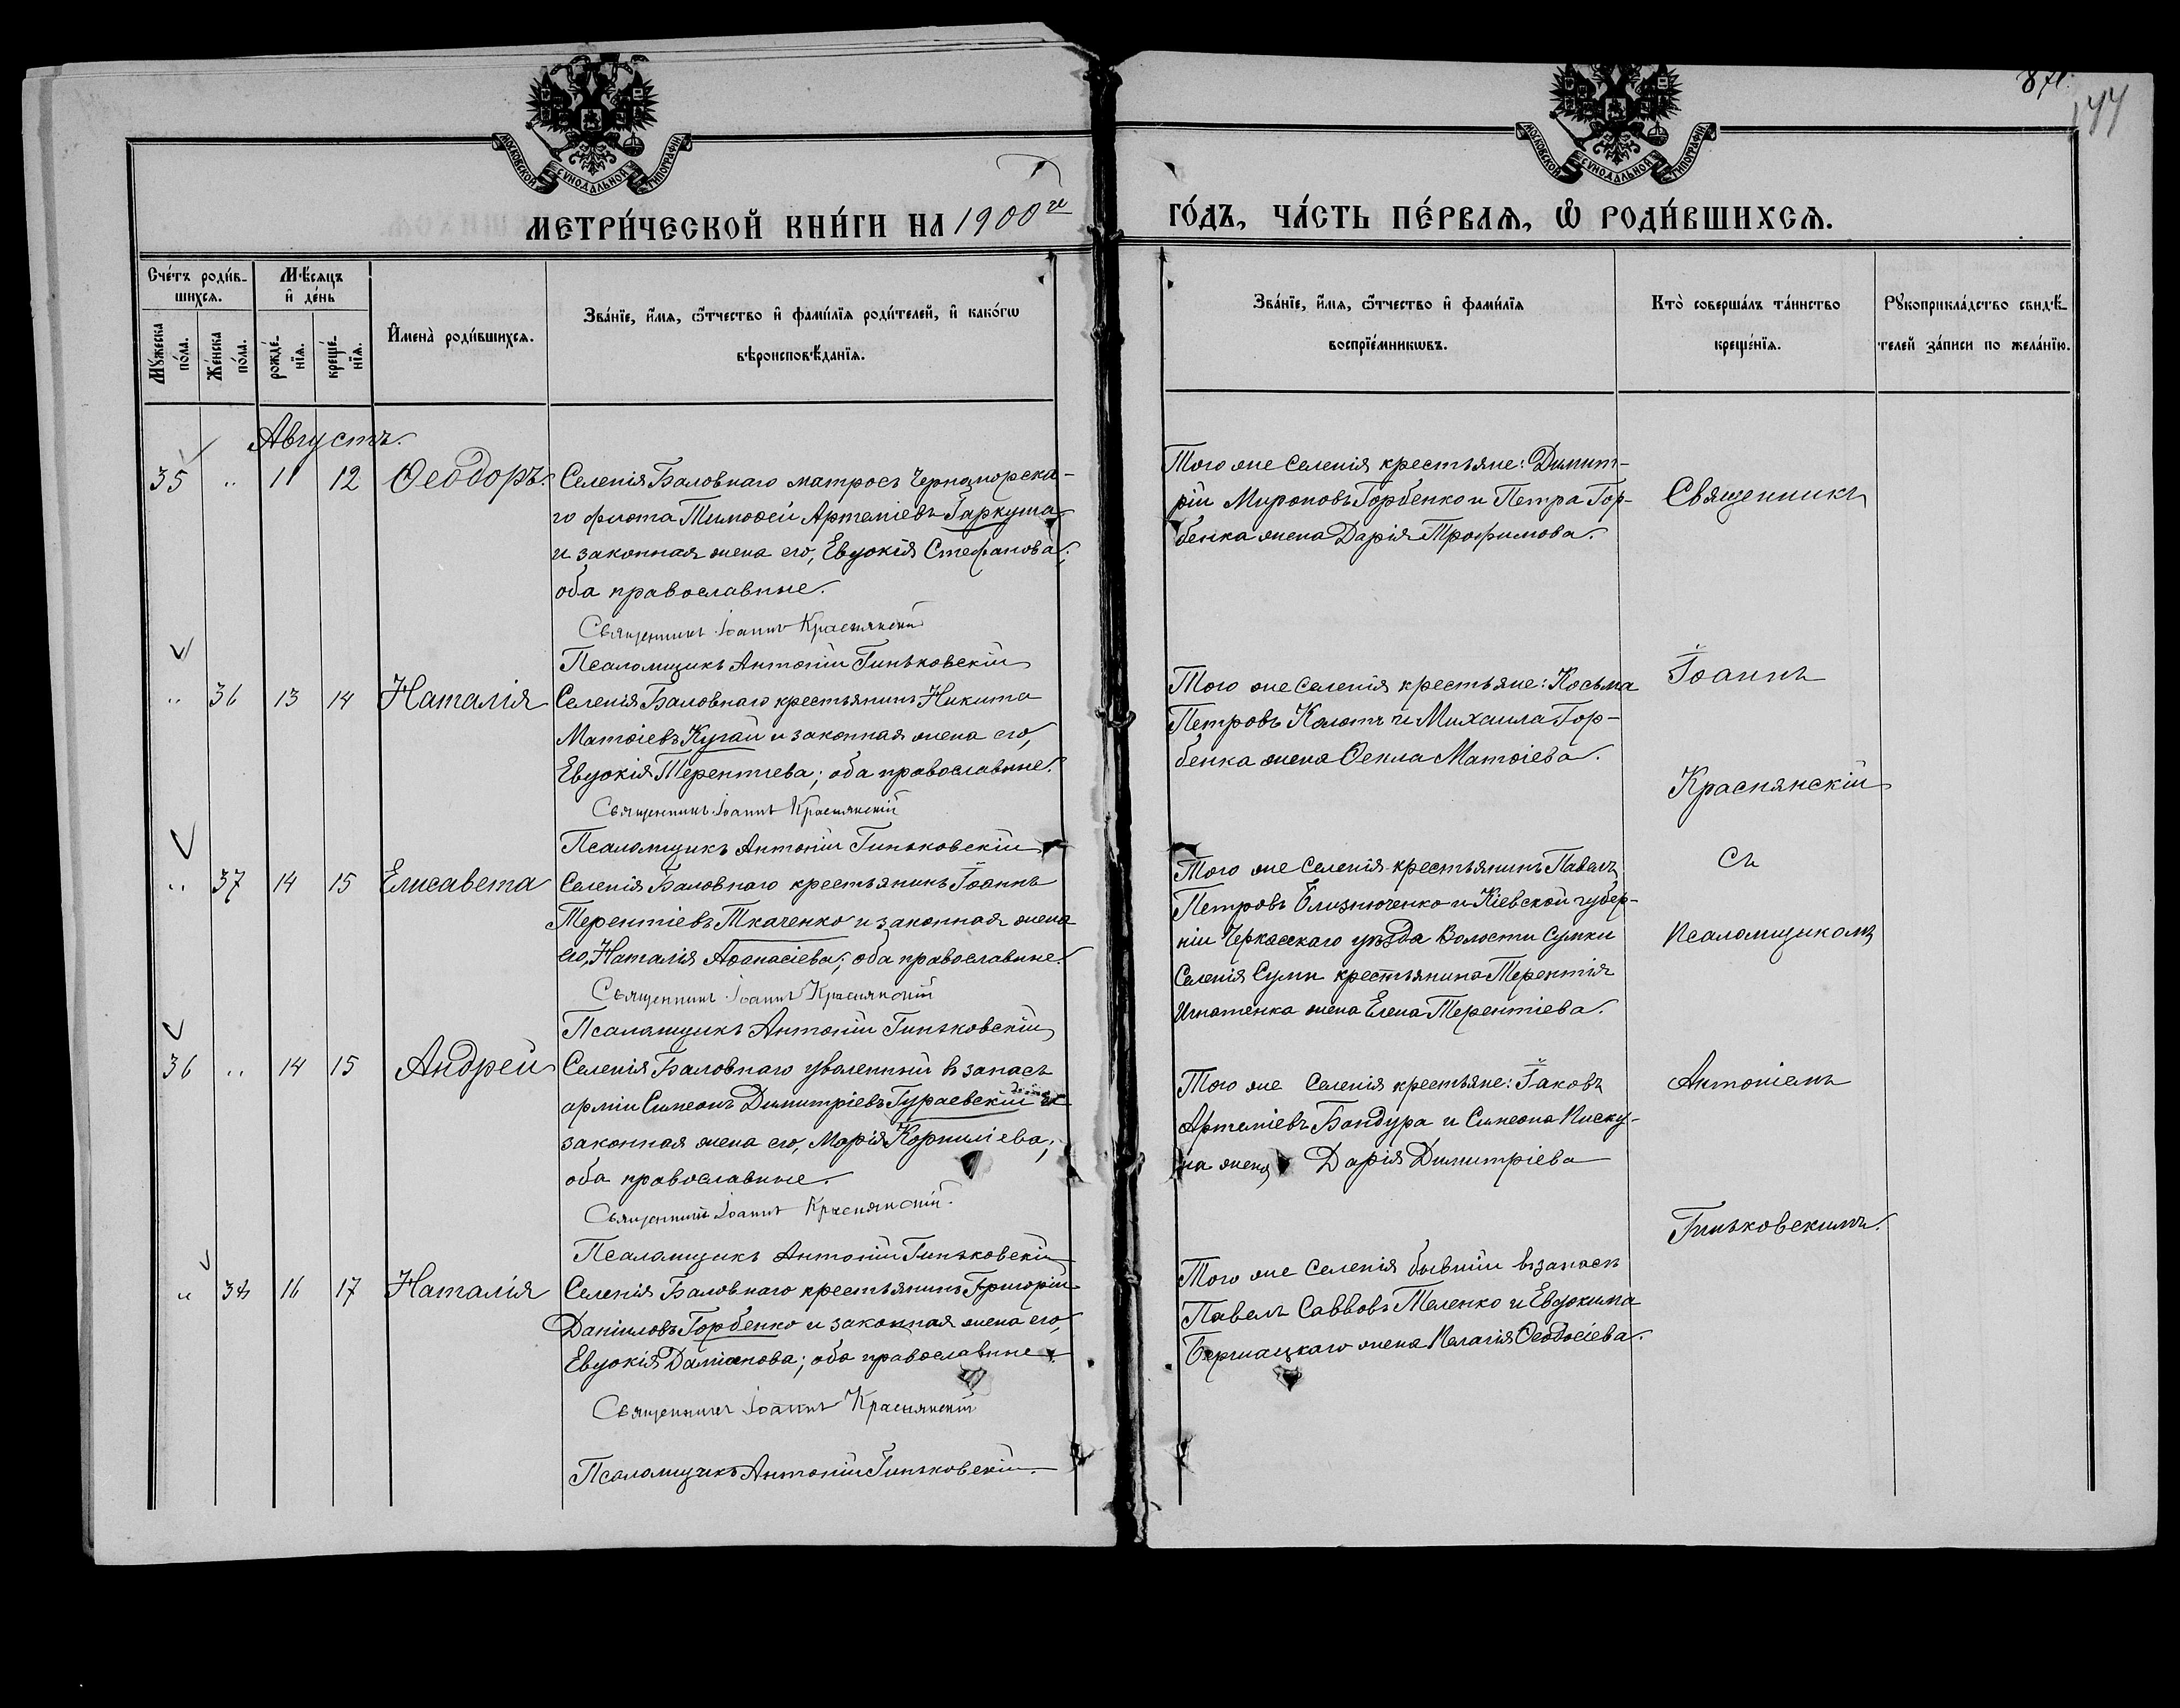 87
144
МОСКОВСКОЙ СѴНОДАЛЬНОЙ ТИПОГРАФІИ
МОСКОВСКОЙ СѴНОДАЛЬНОЙ ТИПОГРАФІИ
МЕТРИ́ЧЕСКОЙ КНИ́ГИ НА 1900й
ГО́ДЪ, ЧА́СТЬ ПЕ́РВАѦ, Ѡ РОДИ́ВШИХСѦ.
Сче́тъ роди́в-
шихсѧ.
Мꙋ́жеска по́ла.
Же́нска по́ла.
Мѣ́сѧцъ
и҆ де́нь
рожде́-
нїѧ.
креще́-
нїѧ.
И҆мена̀ роди́вшихсѧ.
Зва́нїе, и҆́мѧ, ѻ҆́тчество и҆ фами́лїѧ роди́телей, и҆ како́гѡ
вѣроисповѣ́данїѧ.
Зва́нїе, и҆́мѧ, ѻ҆́тчество и҆ фами́лїѧ
воспрїе́мникѡвъ.
Кто̀ соверша́лъ та́инство
креще́нїѧ.
Рꙋкоприкла́дство свидѣ́-
телей за́писи по жела́нїю.
Августъ.
35 " 11 12 Ѳеодоръ.
Селенія Баловнаго матросъ Черноморска-
го флота Тимоѳей Артеміевъ Гаркуша
и законная жена его, Евдокія Стефанова;
оба православные.
Священникъ Іоаннъ Краснянскій
Псаломщикъ Антоній Гиньковскій
Того же селенія крестьяне: Димит-
рій Мироновъ Горбенко и Петра Гор-
бенка жена Дарія Трофимова.
" 36 13 14 Наталія
Селенія Баловнаго крестьянинъ Никита
Матѳіевъ Кугай и законная жена его,
Евдокія Терентіева; оба православные.
Священникъ Іоаннъ Краснянскій
Псаломщикъ Антоній Гиньковскій
Того же селенія крестьяне: Косьма
Петровъ и Михаила Гор-
бенка жена Ѳекла Матѳіева.
" 37 14 15 Елисавета
Селенія Баловнаго крестьянинъ Іоаннъ
Терентіевъ Ткаченко и законная жена
его, Наталія Аѳанасіева; оба православные.
Священникъ Іоаннъ Краснянскій
Псаломщикъ Антоній Гиньковскій
Того же селенія крестьянинъ Павелъ
Петровъ Близнюченко и Кіевской губер-
ніи Черкасскаго уѣзда Волости Сумки
Селенія Сумк крестьянина Терентія
Игнатенка жена Елена Терентіева.
36 " 14 15 Андрей
Селенія Баловнаго уволенный въ запасъ
арміи Симеонъ Димитріевъ Гураевскій и
законная жена его, Марія Корниліева;
оба православные.
Священникъ Іоаннъ Краснянскій.
Псаломщикъ Антоній Гиньковскій
Того же селенія крестьяне: Іаковъ
Артеміевъ Бандура и Симеона Писку-
на жена Дарія Димитріева
" 38 16 17 Наталія
Селенія Баловнаго крестьянинъ Григорій
Даніиловъ Горбенко и законная жена его,
Евдокія Даміанова; оба православные.
Священникъ Іоаннъ Краснянскій
Псаломщикъ Антоній Гиньковскій.
Того же селенія бывшій въ запасѣ
Павелъ Саввовъ Теленко и Евдокима
жена Пелагія Ѳеодосіева.
Священникъ
Іоаннъ
Краснянскій
съ
псаломщикомъ
Антоніемъ
Гиньковскимъ.